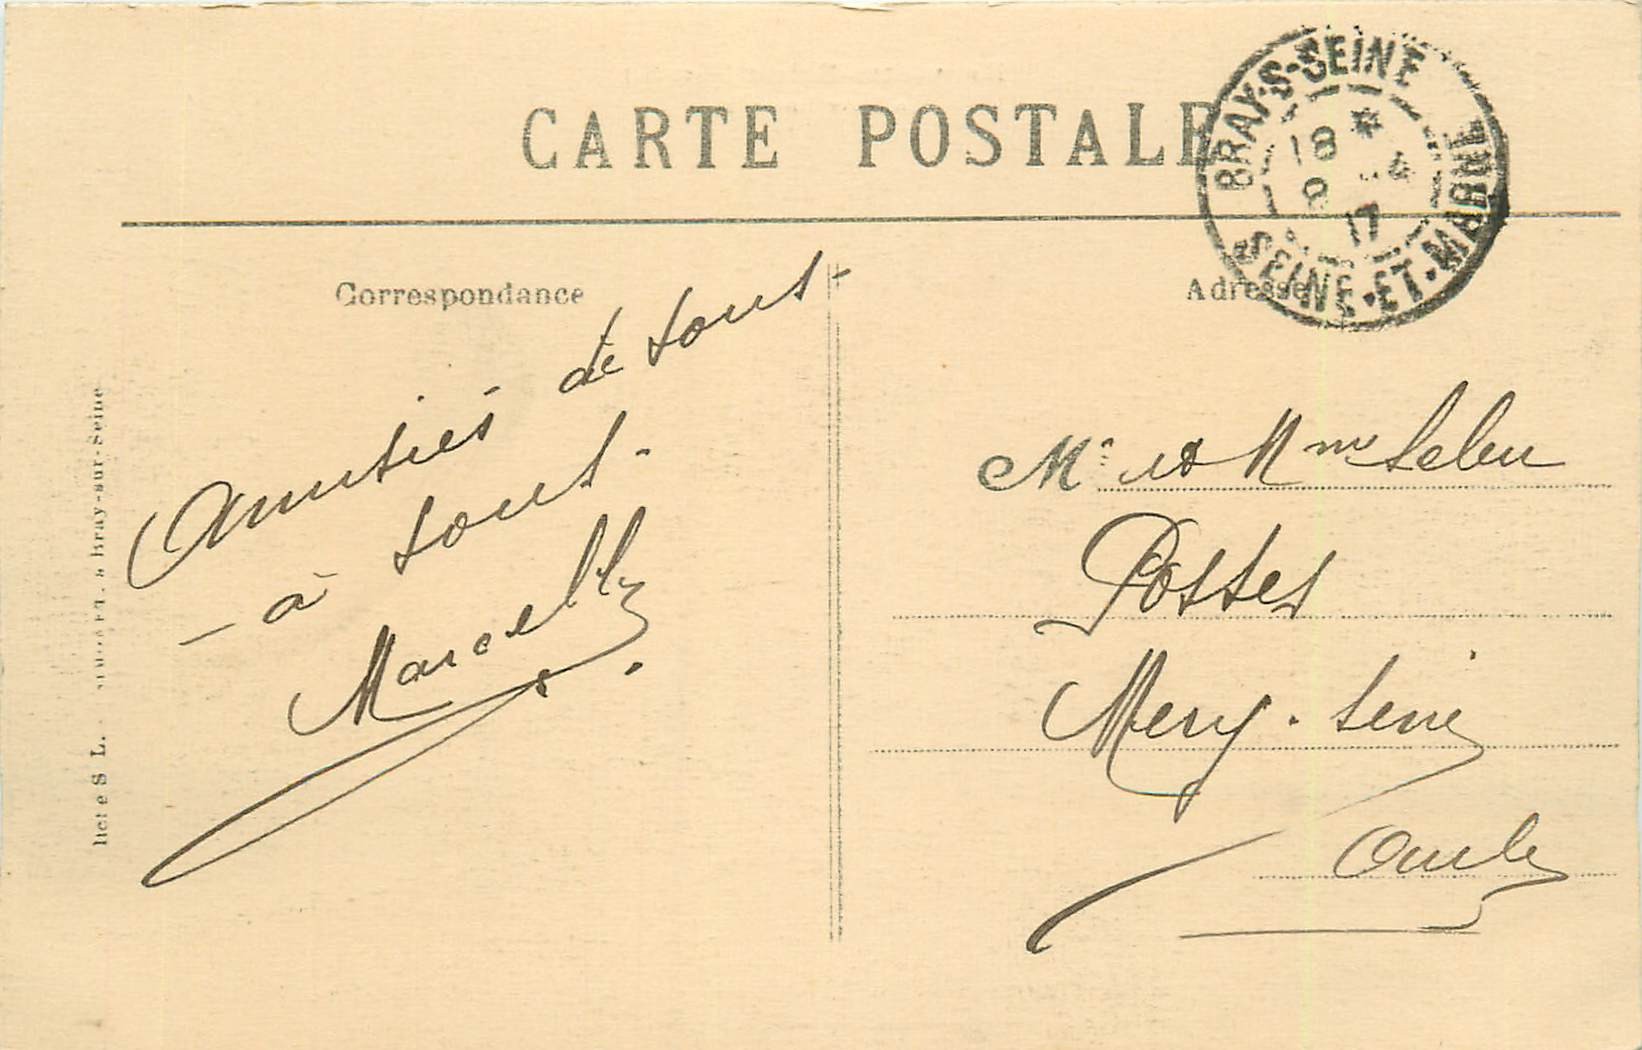 CARTE POSTALE
BRAY-S-SEINE
18 *
8 -4
17
SEINE-ET-MARNE
Correspondance
Adresse
Amitiés de tous
- à tous -
Marcelle
Mr et Mme
Postes
Mery. Seine
Aube
à Bray-sur-Seine